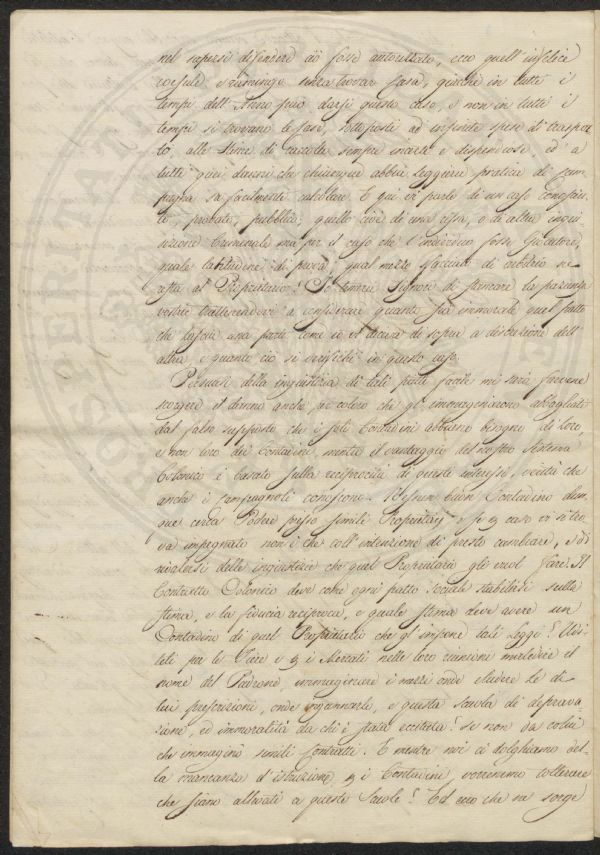 nel sapersi difendere ciò fosse autorizzato, ecco quell'infelice
esule e ramingo senza trovar Casa, giacchè in tutti i
tempi dell'Anno può darsi questo caso, e non in tutti i
tempi si trovano le Case, sottoposti ad infinite spese di traspor
to, alle stime di raccolte sempre incerte e dispendiose ed a
tutti quei danni che chiunque abbia leggiera pratica di Cam
pagna sa facilmente calcolare. E qui si parla di un caso conosciu
to, probato, pubblico; quello cioè di una rissa, o di altra inqui
sizione Criminale ma per il caso che l'individuo fosse Giocatore,
quale latitudine di prova, qual mezzo sfacciato di arbitrio re
sta al Proprietario! Io temerei Signori di stancare la pazienza
vostra trattenendovi a considerare quanto sia immorale quel patto
che lascia una parte come io vi diceva di sopra a discrezione dell'
altra, e quanto ciò si verifichi in questo caso.
Persuasi della ingiustizia di tali patti facile mi sarà farvene
scorgere il danno anche per coloro che gl'immaginarono abbagliati
dal falso supposto che i soli Contadini abbiano bisogno di loro,
e non loro dei Contadini, mentre il vantaggio del nostro Sistema
Colonico è basato sulla reciprocità di questi interessi, verità che
anche i campagnoli conoscono. Nessun buon Contadino dun
que cerca Podere presso simili Proprietarj e se p caso vi si tro
va impegnato non è che coll'intenzione di presto cambiare, e di
rivalersi delle ingiustizie che quel Proprietario gli vuol fare. Il
Contratto Colonico deve come ogni patto sociale stabilirsi sulla
stima, e la fiducia reciproca, e quale stima deve avere un
Contadino di quel Proprietario che gl'impone tali leggi?
per le Fiere e p i Mercati nelle loro riunioni maledire il
nome del Padrone, immaginare i mezzi onde eludere le di
lui prescrizioni, onde ingannarlo, e questa scuola di deprava-
zione, ed immoralità da chi è stata eccitata? Se non da colui
che immaginò simili Contratti. E mentre noi ci dolghiamo del-
la mancanza d'istruzione p i Contadini, vorremmo tollerare
che siano allevati a queste Scuole? Ed ecco che ne sorge